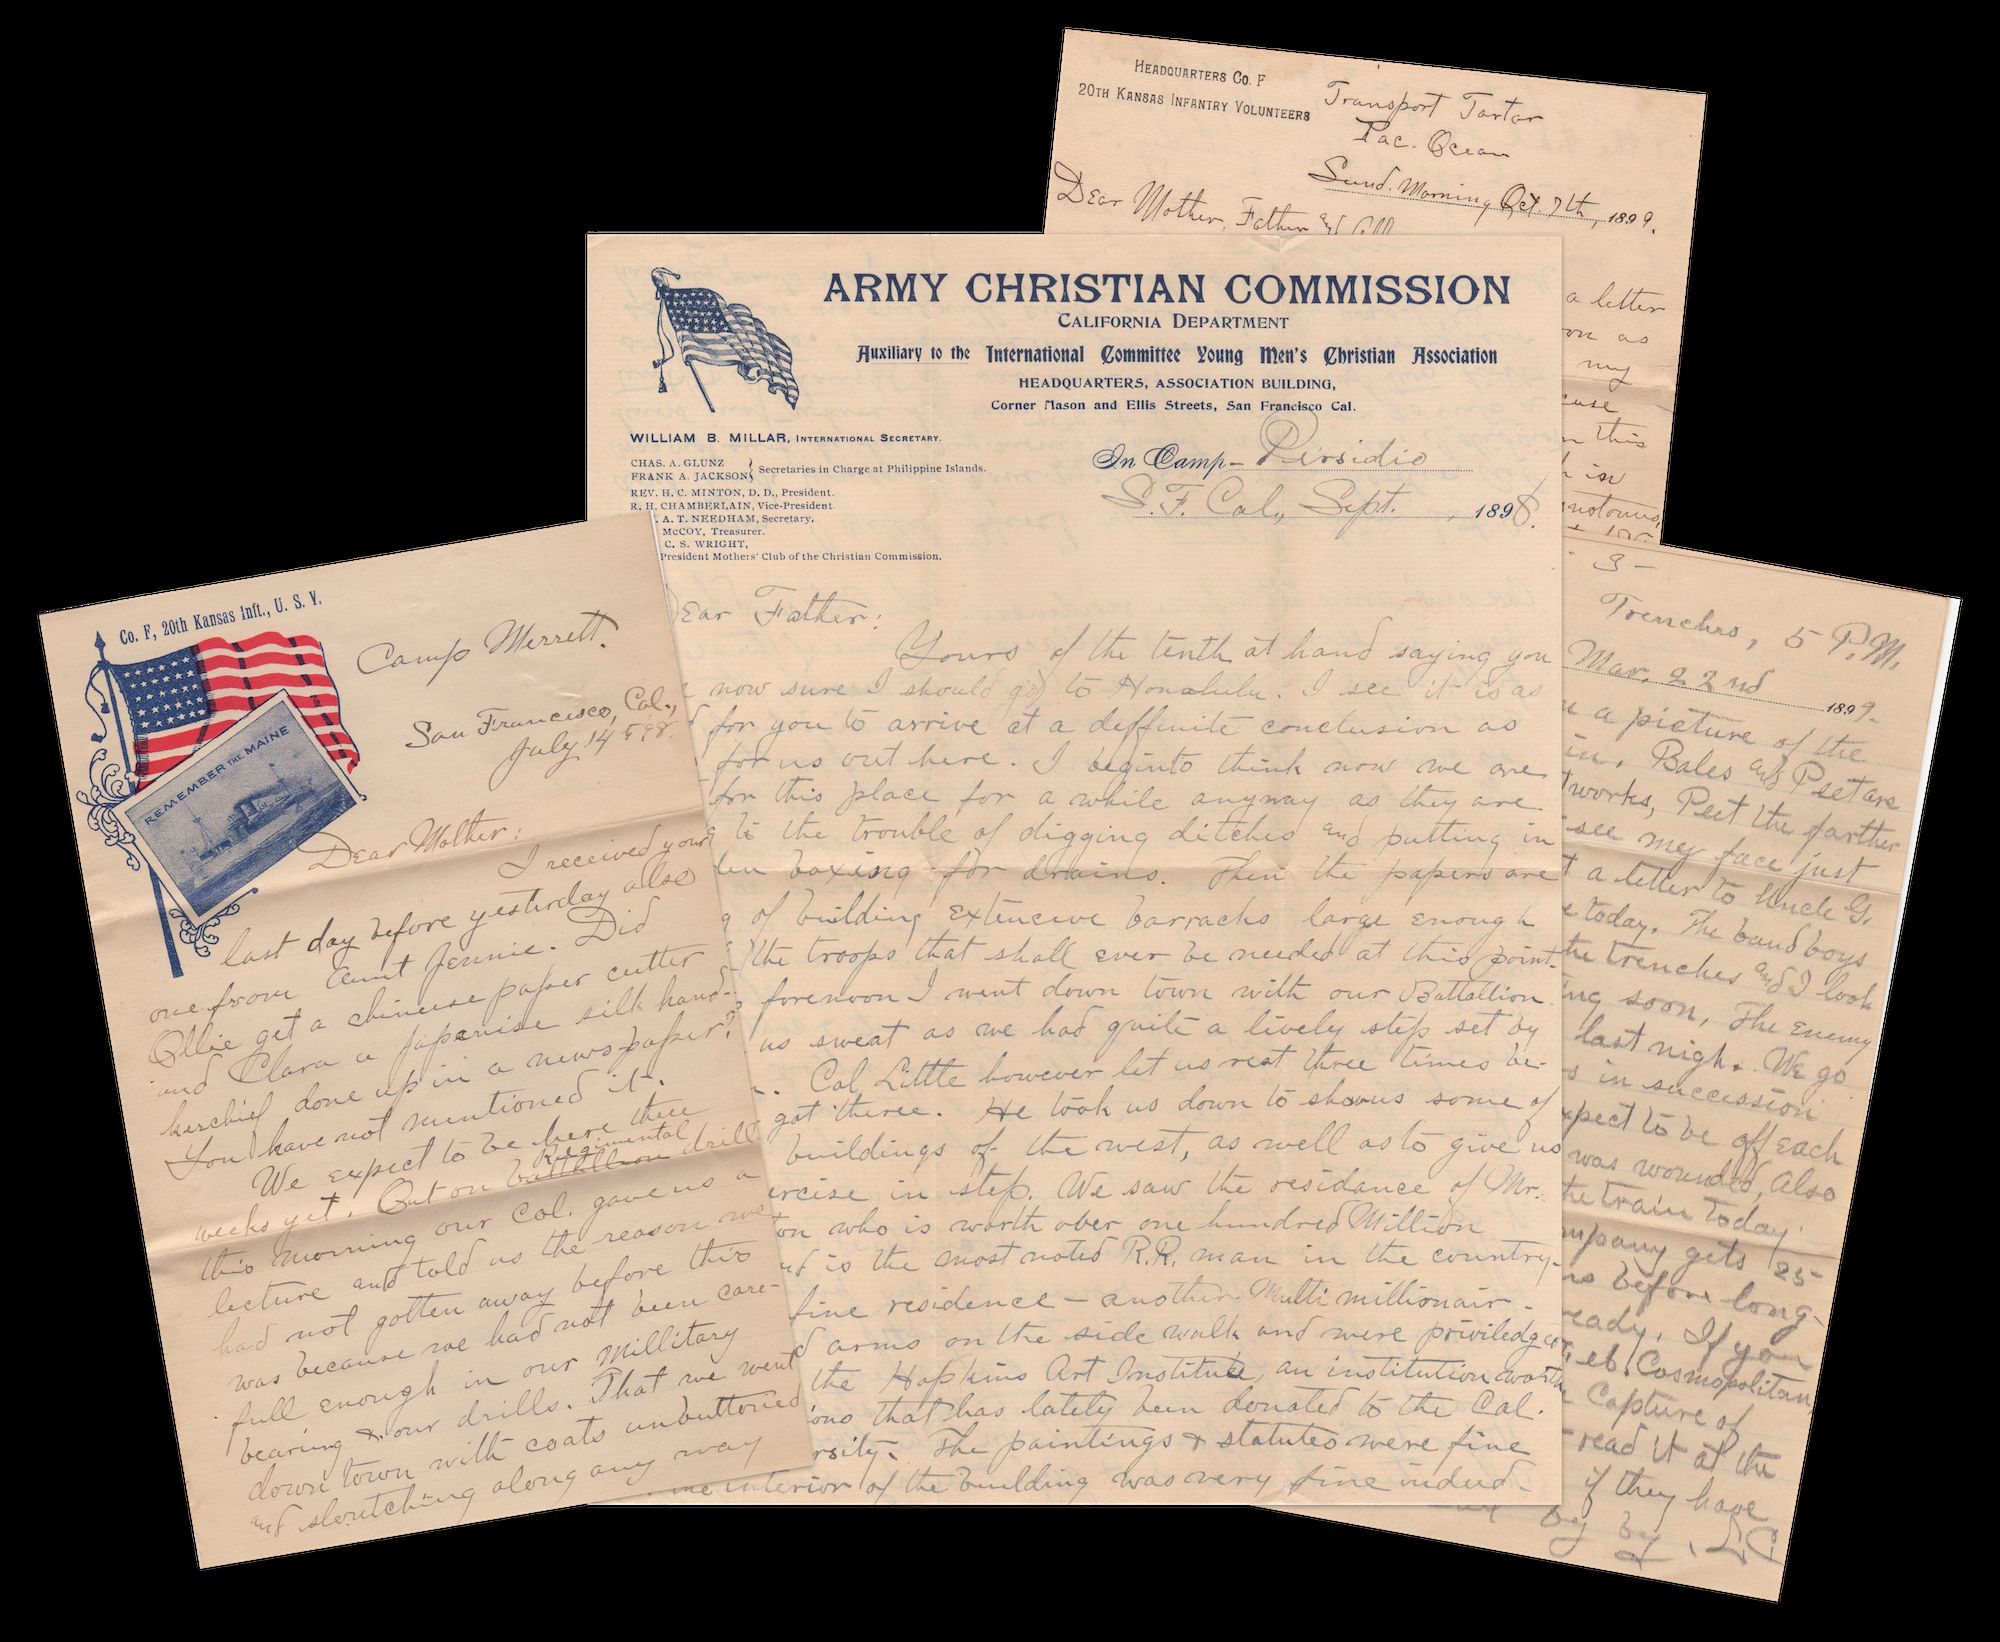 HEADQUARTERS CO. F
20TH KANSAS INFANTRY VOLUNTEERS
Transport Tartar
Pac. Ocean
Sund. Morning Oct. 7th, 1899.
Dear Mother, Father and all
a letter
on as
my
cuse
n this
h in
notonus,
ARMY CHRISTIAN COMMISSION
CALIFORNIA DEPARTMENT
Auxiliary to the International Committee Young Men's Christian Association
HEADQUARTERS, ASSOCIATION BUILDING,
Corner Mason and Ellis Streets, San Francisco Cal.
WILLIAM B. MILLAR, INTERNATIONAL SECRETARY.
CHAS. A. GLUNZ
FRANK A. JACKSON
Secretaries in Charge at Philippine Islands.
REV. H. C. MINTON, D. D., President.
R. H. CHAMBERLAIN, Vice-President.
A. T. NEEDHAM, Secretary.
McCOY, Treasurer.
C. S. WRIGHT,
President Mothers' Club of the Christian Commission.
In Camp- Pirsidio
S.F. Cal., Sept. , 1898.
Dear Father:
Yours of the tenth at hand saying you
now sure I should go to Honolulu. I see it is as
for you to arrive at a deffinite conclusion as
for us out here. I begin to think now we are
for this place for a while anyway as they are
g to the trouble of digging ditches and putting in
den boxing for drains. Then the papers are
g of building extencive barracks large enough
the troops that shall ever be needed at this point.
forenoon I went down town with our Battallion.
us sweat as we had quite a lively step set by
. Col Little however let us rest three times be-
got there. He took us down to show us some of
buildings of the west, as well as to give us
ercise in step. We saw the residance of Mr.
ton who is worth over one hundred Million
and is the most noted R.R. man in the country.
fine residence - another Multi millionair -
d arms on the side walk and were priviledged
the Hopkins Art Institute, an institution worth
ions that has lately been donated to the Cal.
rsity. The paintings & statutes were fine
The interior of the building was very fine indeed.
Co. F, 20th Kansas Inft., U. S. V.
REMEMBER THE MAINE
Camp Merrett.
San Francisco, Cal.,
July 14 1898.
Dear Mother:
I received your
last day before yesterday also
one from Aunt Jennie. Did
Ollie get a chinese paper cutter
and Clara a japanise silk hand-
kerchief done up in a newspaper?
You have not mentioned it.
We expect to be here three
weeks yet. Out on battallion Regimental drill
this morning our Col. gave us a
lecture and told us the reason we
had not gotten away before this
was because we had not been care-
full enough in our millitary
bearing & our drills. That we went
down town with coats unbuttoned
and slouching along any way
- 3 -
Trenches, 5 P.M.
Mar. 22nd 1899.
a picture of the
in. Bales and Peet are
tworks, Peet the farther
see my face just
t a letter to Uncle G.
e today. The band boys
the trenches and I look
ing soon, The Enemy
last nigh. We go
s in succession
xpect to be off each
was wounded, Also
the train today.
mpany gets 25
ns before long.
ready. If you
Cosmopolitan
Capture of
read it at the
if they have
by by. L C